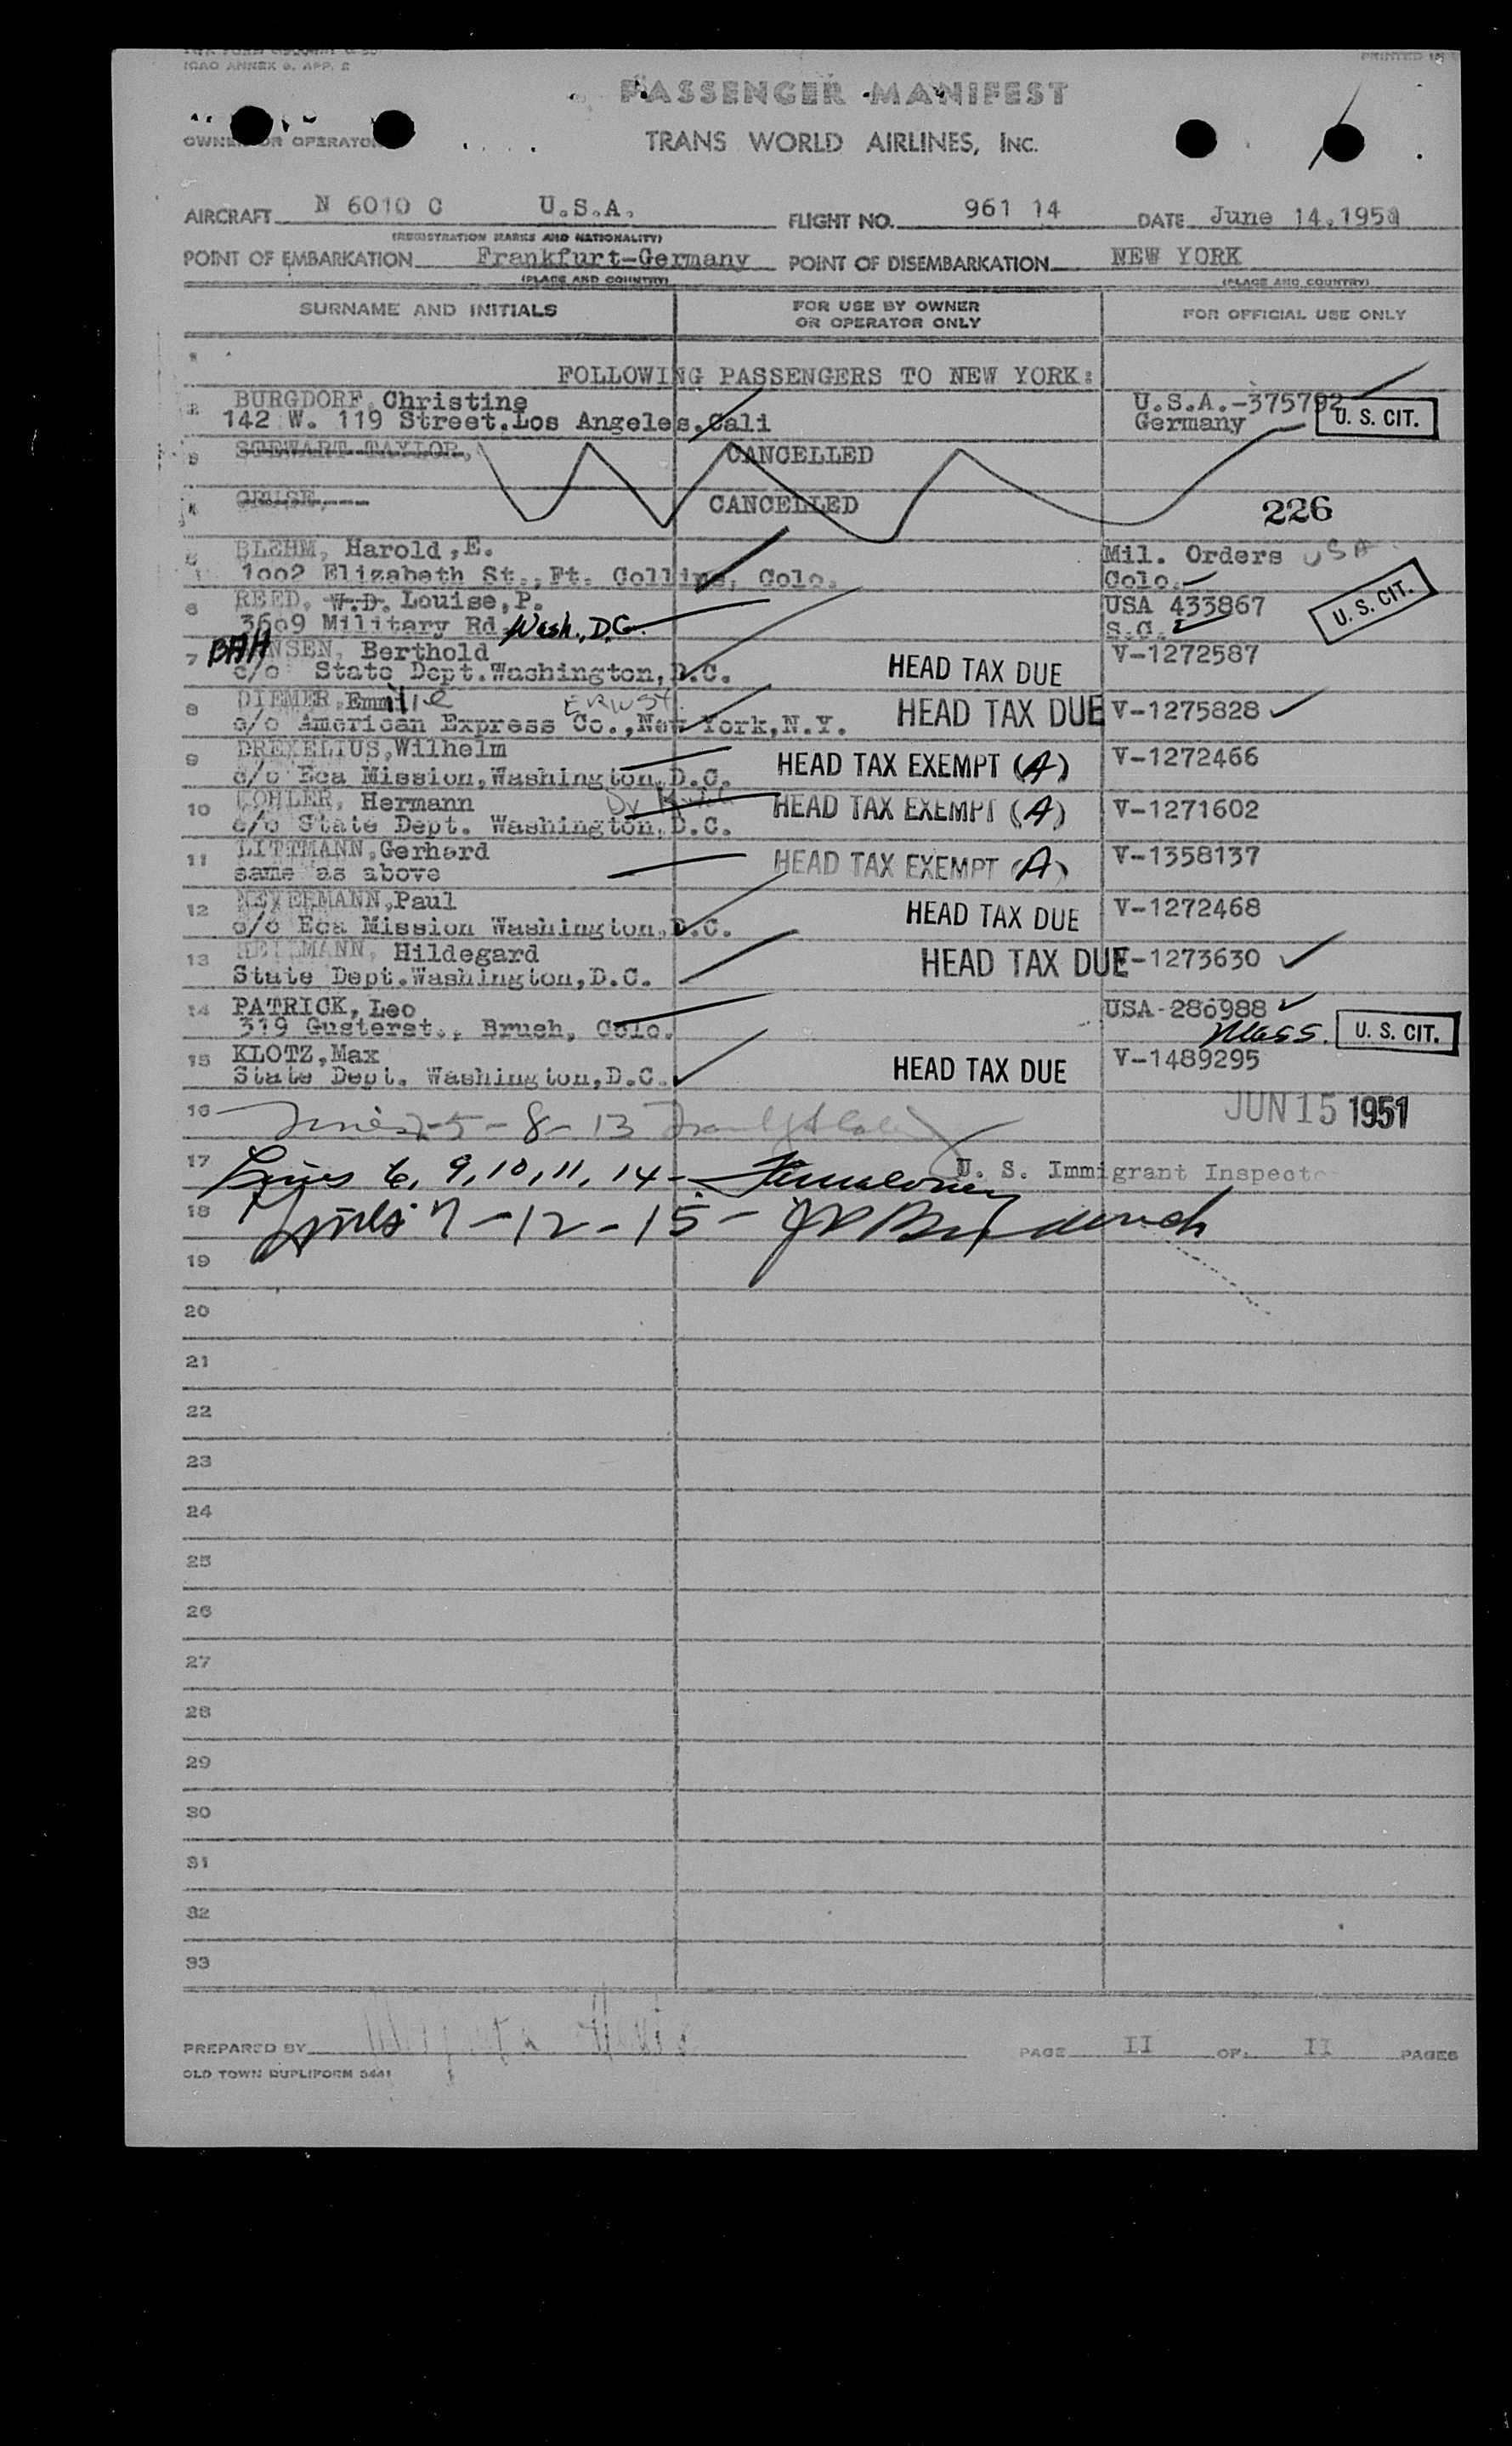 ICAO ANNEX 9, APP. 2
PRINTED IN
PASSENGER MANIFEST
OWNER OR OPERATOR
TRANS WORLD AIRLINES, INC.
AIRCRAFT N 6010 C U.S.A. FLIGHT NO. 961 14 DATE June 14.1951
(REGISTRATION MARKS AND NATIONALITY)
POINT OF EMBARKATION Frankfurt-Germany POINT OF DISEMBARKATION NEW YORK
(PLACE AND COUNTRY) (PLACE AND COUNTRY)
SURNAME AND INITIALS FOR USE BY OWNER OR OPERATOR ONLY FOR OFFICIAL USE ONLY
1 FOLLOWING PASSENGERS TO NEW YORK:
2 BURGDORF, Christine U.S.A.-375792
142 W. 119 Street.Los Angeles.Cali Germany U. S. CIT.
3 STEWART TAYLOR, CANCELLED
4 CANCELLED 226
5 BLEHM, Harold,E. Mil. Orders USA
1002 Elizabeth St., Ft. Collins, Colo. Colo.
6 REED, W.D. Louise,P. USA 433867 U. S. CIT.
3609 Military Rd Wash., D.C. S.C.
7 BAHNSEN, Berthold HEAD TAX DUE V-1272587
c/o State Dept.Washington, D.C.
8 DIEMER, Emilie Ernst HEAD TAX DUE V-1275828
c/o American Express Co.,New York,N.Y.
9 DREXELIUS,Wilhelm HEAD TAX EXEMPT (A) V-1272466
c/o Eca Mission,Washington,D.C.
10 Hermann HEAD TAX EXEMPT (A) V-1271602
c/o State Dept. Washington,D.C.
11 LITTMANN,Gerhard HEAD TAX EXEMPT (A) V-1358137
same as above
12 NEVERMANN,Paul HEAD TAX DUE V-1272468
c/o Eca Mission Washington,D.C.
13 Hildegard HEAD TAX DUE V-1273630
State Dept.Washington,D.C.
14 PATRICK, Leo USA-286988
319 Gusterst., Brush, Colo. Mass. U. S. CIT.
15 KLOTZ,Max HEAD TAX DUE V-1489295
State Dept. Washington,D.C.
16 Lines 2-5-8-13 JUN 15 1951
17 Lines 6, 9, 10, 11, 14- U. S. Immigrant Inspector
18 Lines 7-12-15-
19
20
21
22
23
24
25
26
27
28
29
30
31
32
33
PREPARED BY PAGE II OF II PAGES
OLD TOWN DUPLIFORM 5441